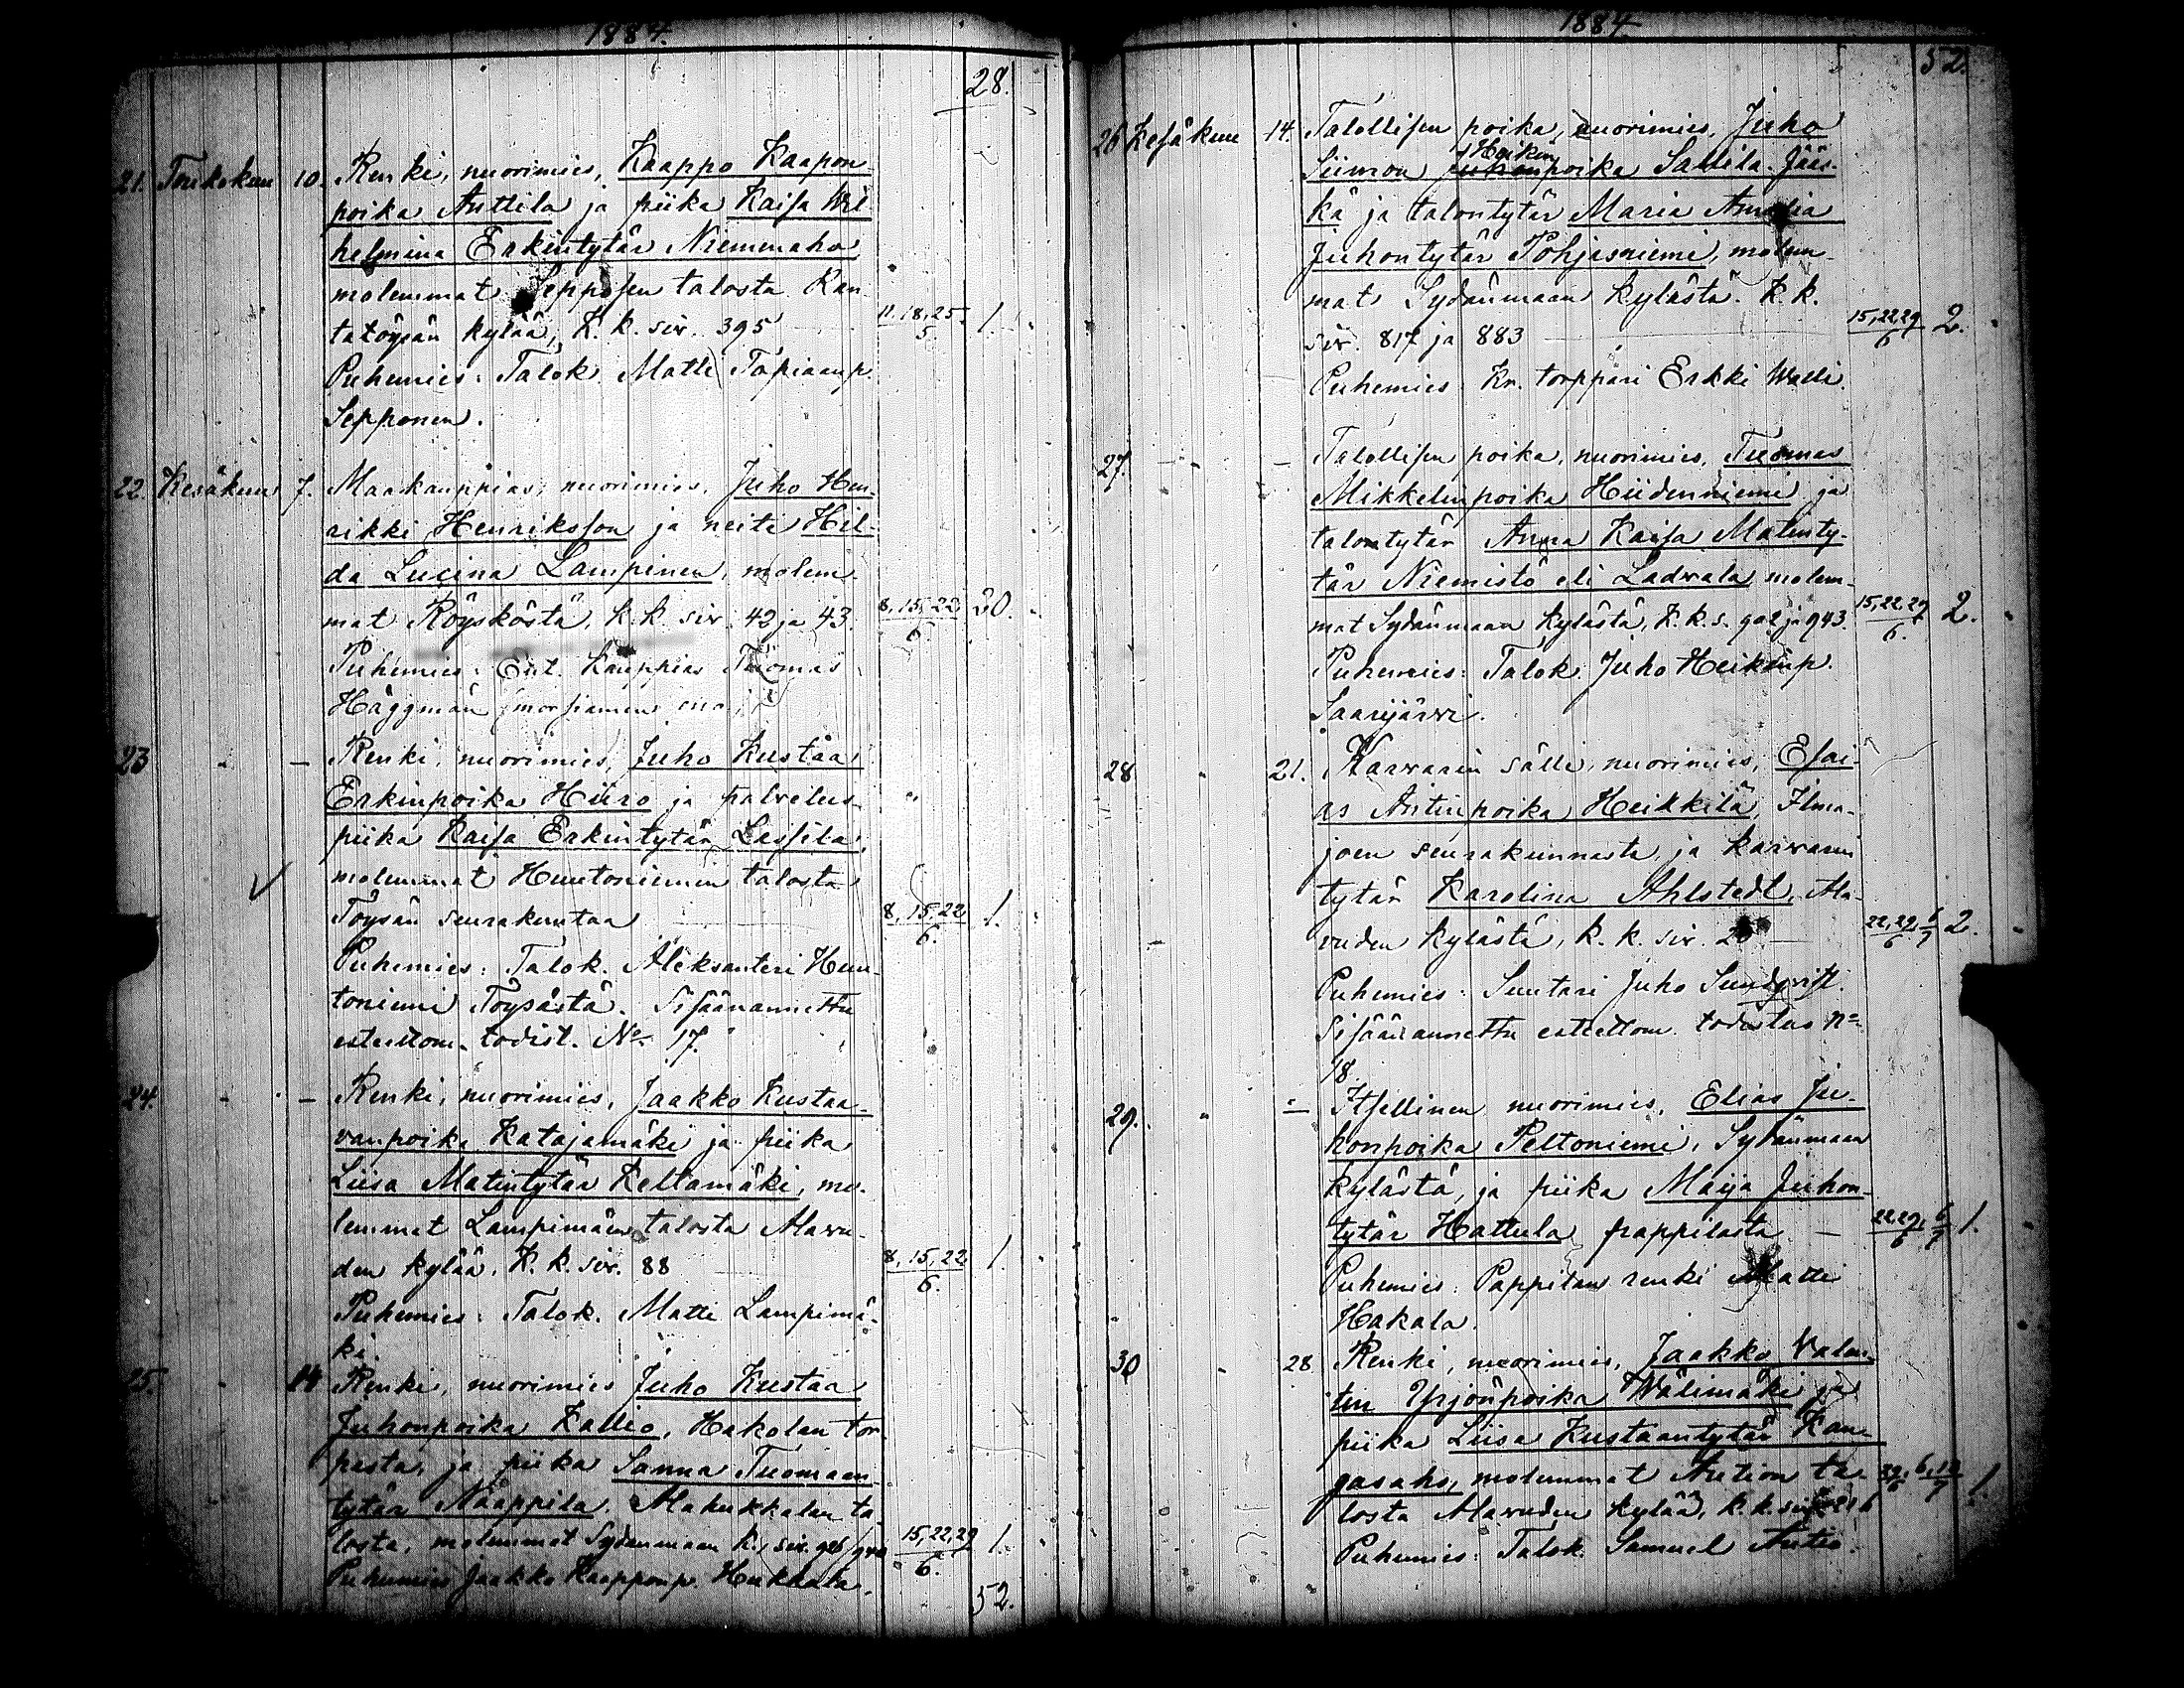 1884.
28.
21. Toukokuu 10. Renki, nuorimies, Kaappo Kaapon-
poika Anttila ja piika Kaisa Wil-
helmina Erkintytär Niemenaho
molemmat Sepposen talosta Kan-
tatöysän kylää, K. k. siv. 395 11.18.25./5. 1.
Puhemies: Talok. Matti Tapiaanp.
Sepponen.
22. Kesäkuu 7. Maakauppias, nuorimies, Juho Hen-
rikki Henriksson ja neiti Hil-
da Lucina Lampinen, molem-
mat Röysköstä, k. k. siv. 42 ja 43. 8,15,22/6. 20.
Puhemies: Ent. Kauppias Tuomas
Häggman (morsiamen eno)
23 " — Renki, nuorimies, Juho Kustaa
Erkinpoika Hiiro ja palvelus-
piika Kaisa Erkintytär Lassila,
molemmat Huutoniemen talosta
Töysän seurakuntaa 8,15,22/6. 1.
Puhemies: Talok. Aleksanteri Huu-
toniemi Töysästä. Sisäänannettu
esteettöm. todist. No 17.
24. " — Renki, nuorimies, Jaakko Kustaa-
vanpoika Katajamäki ja piika
Liisa Matintytär Keltamäki, mo-
lemmat Lampimäen talosta Alavu-
den kylää. K. k. siv. 88 8,15,22/6. 1.
Puhemies: Talok. Matti Lampimä-
ki.
25. " 14 Renki, nuorimies Juho Kustaa
Juhonpoika Kallio, Hakolan tor-
pasta, ja piika Sanna Tuomaan-
tytär Näappila Alakukkolan ta-
losta, molemmat Sydänmaan k., siv. 926, 940 15,22,29/6. 1.
Puhemies Jaakko Kaapponp. Hukkala.
52.
1884
52.
26 Kesäkuu 14. Talollisen poika, nuorimies, Juho
Siimon Heikin poika Saliila-Jääs-
kä ja talontytär Maria Amalia
Juhontytär Pohjasniemi, molem-
mat Sydänmaan kylästä. K. k.
siv. 817 ja 883 15,22,29/6 2.
Puhemies: Kr. torppari Erkki Walli.
27. " — Talollisen poika, nuorimies, Tuomas
Mikkelinpoika Hiidenniemi ja
talontytär Anna Kaisa Matinty-
tär Niemistö eli Ladvala molem-
mat Sydänmaan kylästä, K. k. s. 902 ja 943. 15,22,29/6. 2.
Puhemies: Talok. Juho Heikinp.
Saarijärvi.
28 " 21. Karvarin sälli, nuorimies, Esai-
as Antinpoika Heikkilä, Ilma-
joen seurakunnasta, ja karvarin
tytär Karolina Ahlstedt, Ala-
vuden kylästä, K. k. siv. 22,29/6, 6/7 2.
Puhemies: Suutari Juho Sundqvist.
Sisäänannettu esteettöm. todistus No
18.
29. " — Itsellinen nuorimies, Elias Ju-
honpoika Peltoniemi, Sydänmaan
kylästä, ja piika Maija Juhon-
tytär Hattula pappilasta — 22,29/6, 6/7 1.
Puhemies: Pappilan renki Matti
Hakala.
30 " 28 Renki, nuorimies, Jaakko Valen-
tin Yrjönpoika Wälimäki ja
piika Liisa Kustaantytär Kan-
gasaho, molemmat Aution ta- 29/6, 6,13/7 1.
losta Alavuden kylää, k. k. siv. 216
Puhemies: Talok. Samuel Autio.